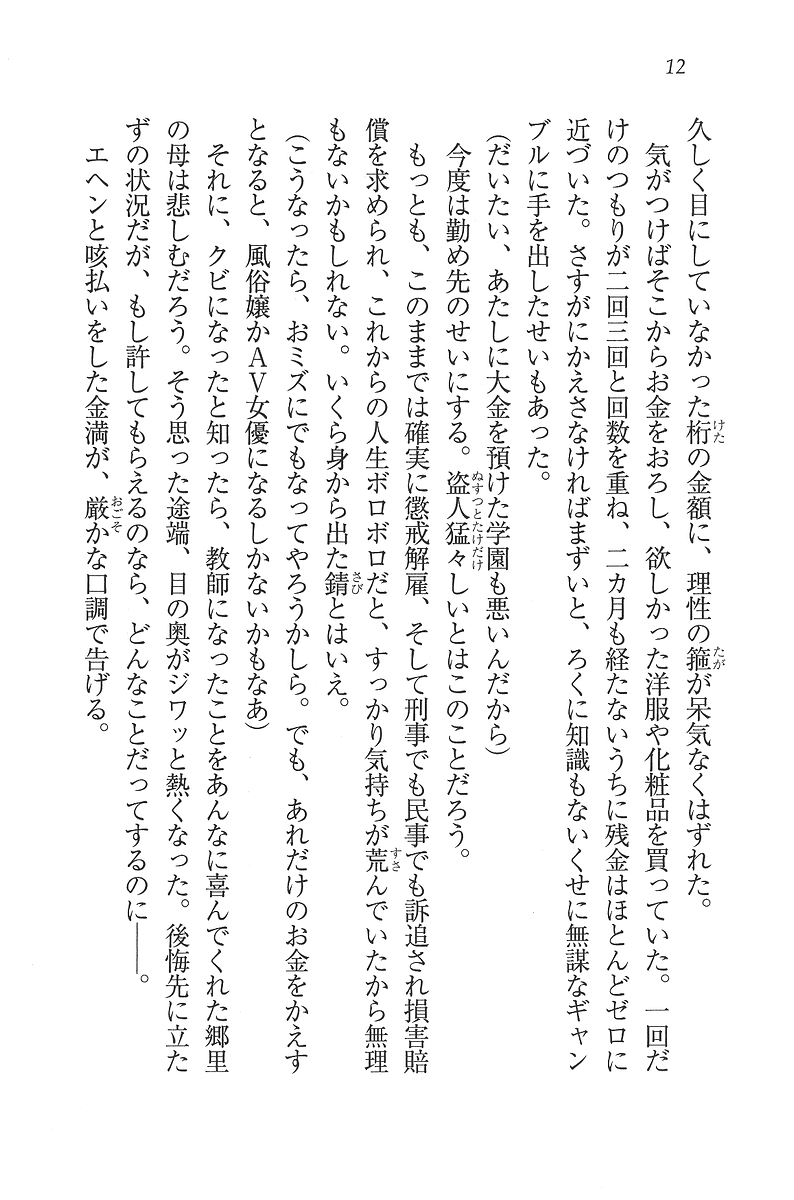 12
久しく目にしていなかった桁の金額に、理性の箍が呆気なくはずれた。
気がつけばそこからお金をおろし、欲しかった洋服や化粧品を買っていた。一回だ
けのつもりが二回三回と回数を重ね、二カ月も経たないうちに残金はほとんどゼロに
近づいた。さすがにかえさなければまずいと、ろくに知識もないくせに無謀なギャン
ブルに手を出したせいもあった。
(だいたい、あたしに大金を預けた学園も悪いんだから)
今度は勤め先のせいにする。盗人猛々しいとはこのことだろう。
もっとも、このままでは確実に懲戒解雇、そして刑事でも民事でも訴追され損害賠
償を求められ、これからの人生ボロボロだと、すっかり気持ちが荒んでいたから無理
もないかもしれない。いくら身から出た錆とはいえ。
(こうなったら、おミズにでもなってやろうかしら。でも、あれだけのお金をかえす
となると、風俗嬢かAV女優になるしかないかもなあ)
それに、クビになったと知ったら、教師になったことをあんなに喜んでくれた郷里
の母は悲しむだろう。そう思った途端、目の奥がジワッと熱くなった。後悔先に立た
ずの状況だが、もし許してもらえるのなら、どんなことだってするのに――。
エヘンと咳払いをした金満が、厳かな口調で告げる。